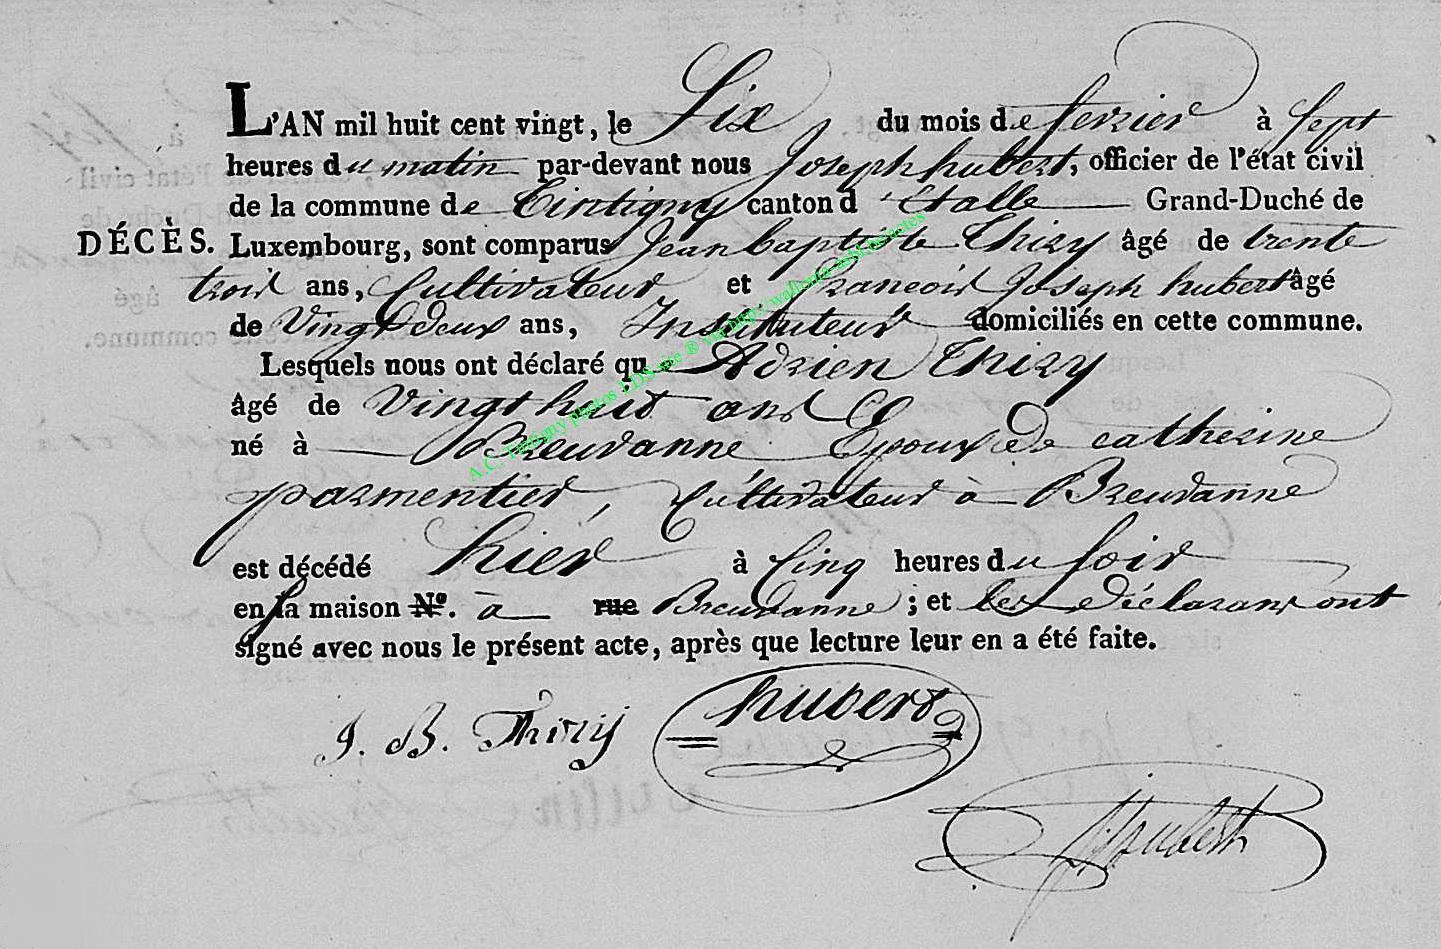 L'AN mil huit cent vingt, le Six du mois de fevrier à Sept
heures du matin par-devant nous Joseph hubert, officier de l'état civil
de la commune de Tintigny canton d'Etalle Grand-Duché de
DÉCÈS. Luxembourg, sont comparus Jean baptiste Thiry âgé de trente
trois ans, Cultivateur et francois Joseph hubert âgé
de Vingt deux ans, Instituteur domiciliés en cette commune.
Lesquels nous ont déclaré qu Adrien Thiry
âgé de Vingt huit ans
né à Breuvanne Epoux de catherine
parmentier, Cultivateur à Breuvanne
est décédé hier à Cinq heures du soir
en sa maison N°. à rue Breuvanne ; et les Déclarans ont
signé avec nous le présent acte, après que lecture leur en a été faite.
J. B. Thiry hubert
Hubert
A.C. Tintigny photos LDS site ® via http://wallonia-asbl.be/dotes